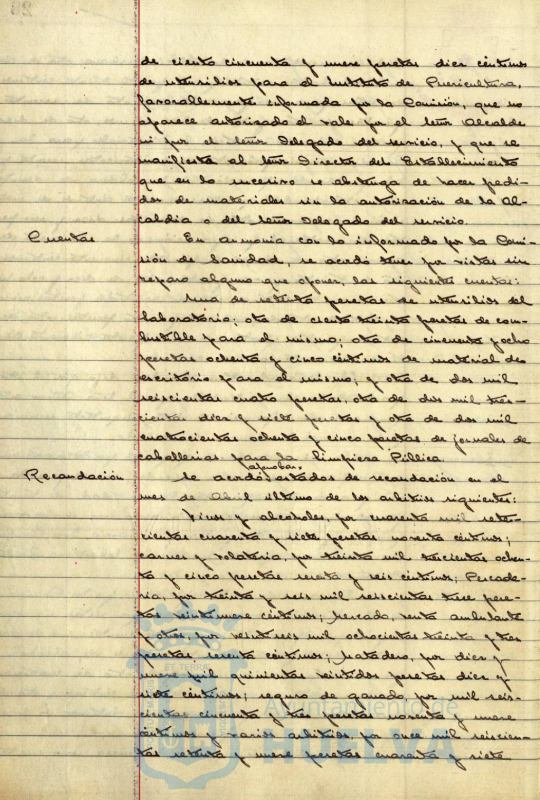 de ciento cincuenta y nueve pesetas diez céntimos
de utensilios para el Instituto de Puericultura,
favorablemente informada por la Comisión, que no
aparece autorizado el vale por el señor Alcalde
ni por el señor Delegado del servicio, y que se
manifiesta al señor Director del Establecimiento
que en lo sucesivo se abstenga de hacer pedi-
dos de materiales sin la autorización de la Al-
caldía o del señor Delegado del servicio.
Cuentas En armonía con lo informado por la Comi-
sión de Sanidad, se acordó tener por vistas sin
reparo alguno que oponer, las siguientes cuentas:
Una de setenta pesetas de utensilios del
laboratorio; otra de ciento treinta pesetas de com-
bustible para el mismo; otra de cincuenta y ocho
pesetas ochenta y cinco céntimos de material de
escritorio para el mismo; y otra de dos mil
seiscientas cuatro pesetas, otra de dos mil tres-
cientas diez y siete pesetas y otra de dos mil
cuatrocientas ochenta y cinco pesetas de jornales de
caballerías para la limpieza Pública.
aprobar
Recaudación Se acordó estados de recaudación en el
mes de Abril último de los arbitrios siguientes:
Vinos y alcoholes, por cuarenta mil sete-
cientas cuarenta y siete pesetas noventa céntimos;
carnes y volatería, por treinta mil trescientas ochen-
ta y cinco pesetas sesenta y seis céntimos; Pescade-
ría, por treinta y seis mil seiscientas trece pese-
tas veintinueve céntimos; Mercado, venta ambulante
y otros, por veintiseis mil ochocientas treinta y tres
pesetas sesenta céntimos; Matadero, por diez y
nueve mil quinientas veintidos pesetas diez y
siete céntimos; seguro de ganado, por mil seis-
cientas cincuenta y tres pesetas noventa y nueve
céntimos y varios arbitrios, por once mil seiscien-
tas setenta y nueve pesetas cuarenta y siete
Ayuntamiento de
HUELVA